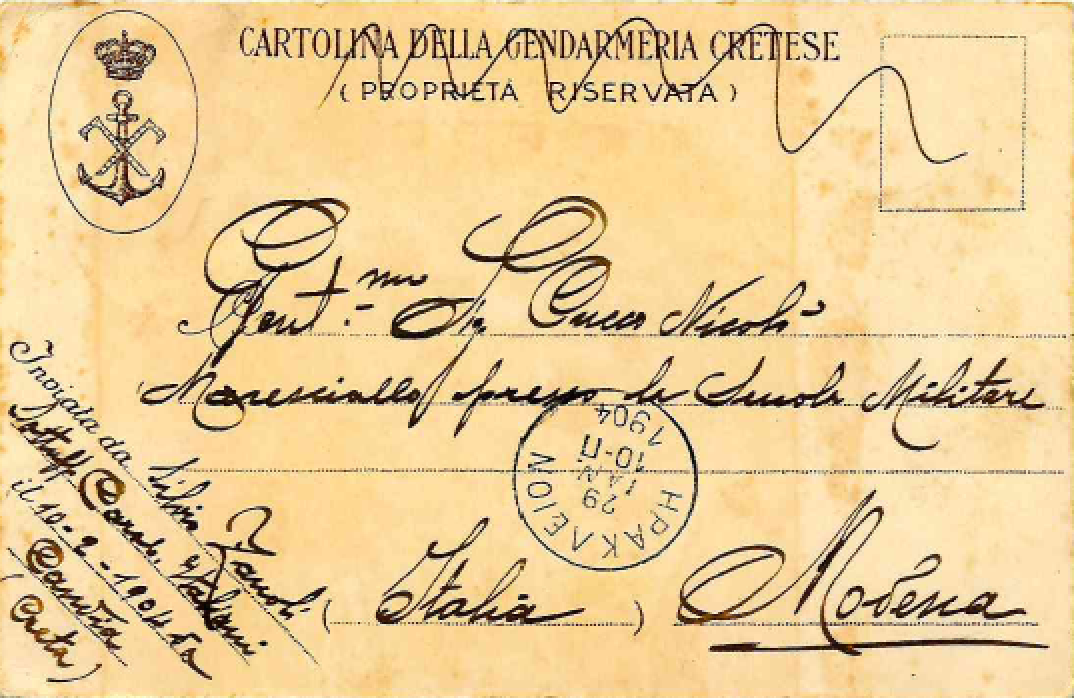 CARTOLINA DELLA GENDARMERIA CRETESE
( PROPRIETÁ RISERVATA )
Gent.mo Sig Cucco Nicolò
Maresciallo presso la Scuola Militare
( Italia ) Modena
ΗΡΑΚΛΕΙΟΝ
29
ΙΑΝ
10-Π
1904
Inviata da Silvio Zanoli
Sottuff Carab. Italiani
il 10-2-1904 da
Canea
( Creta )